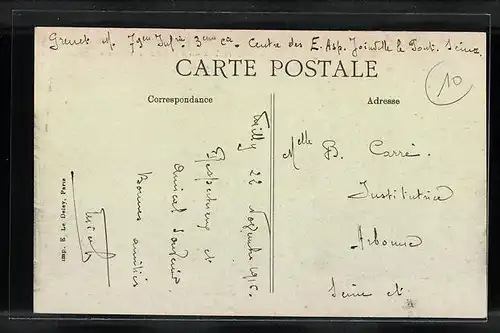 Grenet M. 79em Infrie 3eme Cie - Centre des E. Asp. Joinville le Pont. Seine.
CARTE POSTALE
10
Correspondance
Adresse
22 Novembre 1915.
Respectueux et
Amical Souvenir
Bonnes amitiés
Imp. E. Le Deley, Paris
Melle B. Carré.
Institutrice
Arbonne
Seine et